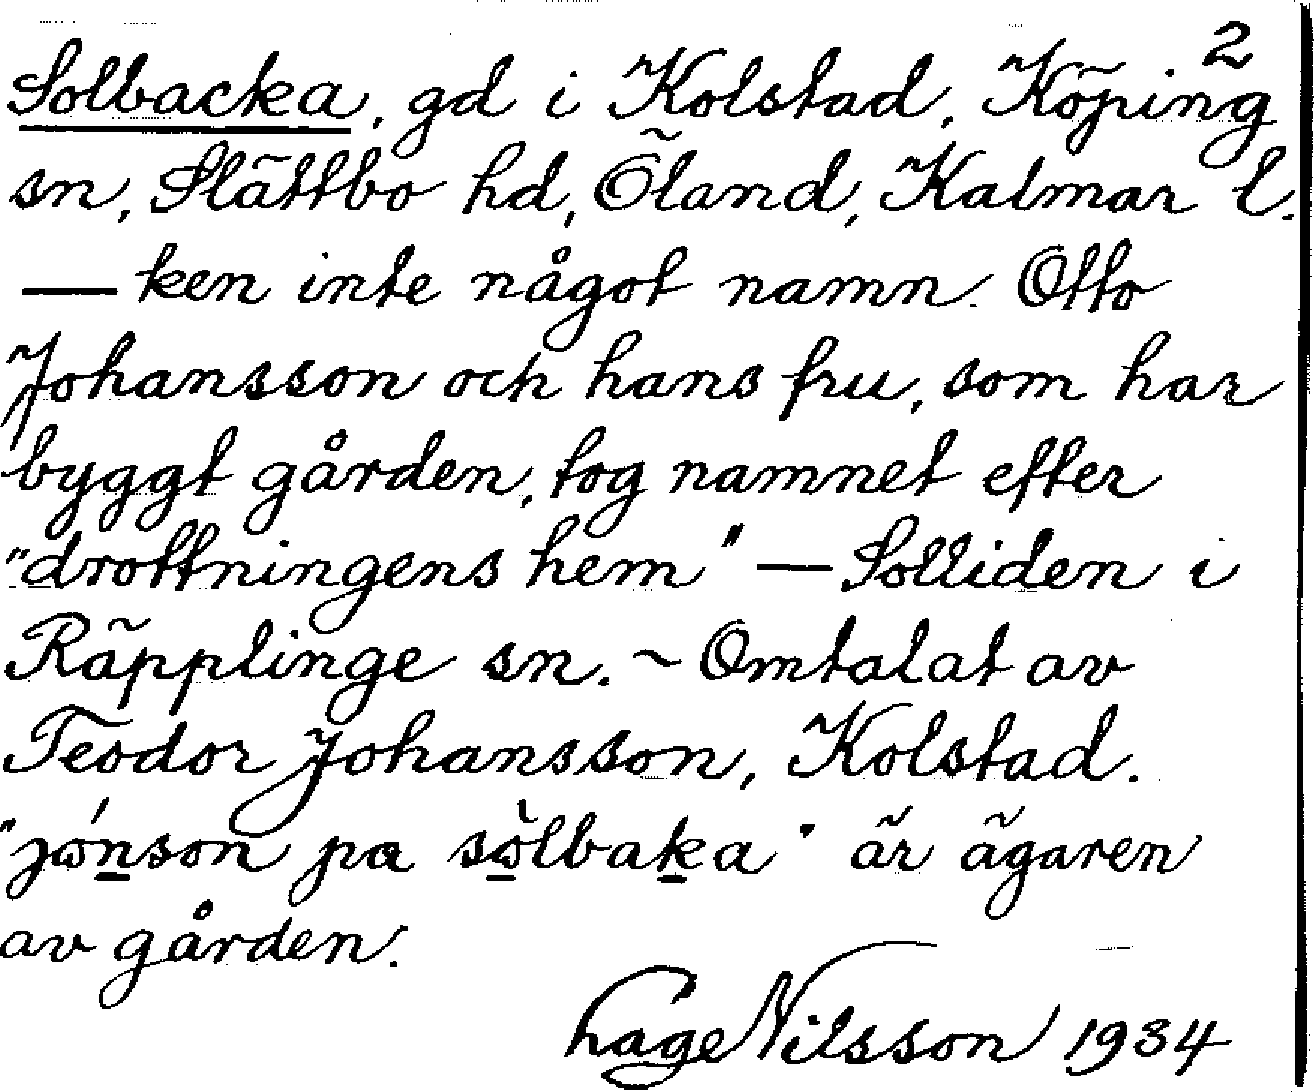 2
Solbacka, gd i Kolstad, Köping
sn, Slättbo hd, Öland, Kalmar l.
— ken inte något namn. Otto
Johansson och hans fru, som har
byggt gården, tog namnet efter
"drottningens hem" — Solliden i
Räpplinge sn. ~ Omtalat av
Teodor Johansson, Kolstad.
"jónson pa sòlbaka" är ägaren
av gården.
Hage Nilsson 1934